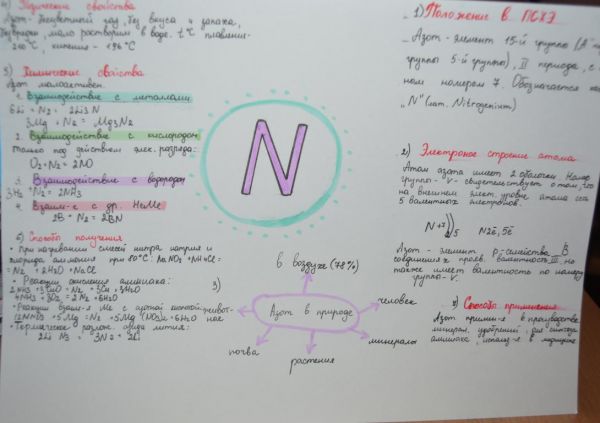 4) Физические свойства
Азот- бесцветный газ, без вкуса и запаха,
безвреден, мало растворим в воде. t°C плавления-
-210°C, кипения - -196°C
5) Химические свойства
Азот малоактивен.
1. Взаимодействие с металлами
6Li + N2 = 2Li3N
3Mg + N2 = Mg3N2
2. Взаимодействие с кислородом
Только под действием элек. разряда:
O2+N2=2NO
3. Взаимодействие с водородом
3H2 + N2 = 2NH3
4. Взаим-е с др. НеМе
2B + N2 = 2BN
6) Способы получения
• При нагревании смесей нитра натрия и
хлорида аммония при 80°C: NaNO2+NH4Cl=
= N2 + 2H2O + NaCl
• Реакции окисления аммиака:
2NH3+3CuO=N2+3Cu+3H2O
4NH3+3O2=2N2+6H2O
• Реакции взаим-я Ме с азотной кислотой:
12HNO3+5Mg=N2+5Mg(NO3)2+6H2O
• Термическое разлож. азида лития:
2Li N3 = 3N2 + 2Li
N
3)
в воздухе (78%)
Азот в природе
человек
минералы
растения
почва
живот-
ные
1) Положение в ПСХЭ
Азот- элемент 15-й группы (A
группы 5-й группы), II периода, с
ном номером 7. Обозначается
"N" (лат. Nitrogenium)
2) Электроное строение атома
Атом азота имеет 2 оболочки. Номер
группы - V - свидетельствует о том, что
на внешнем элект. уровне атома есть
5 валентных электронов.
N+7))
2 5
N2ē,5ē
Азот - элемент p-семейства. В
соединениях прояв. валентность III. Но
также имеет валентность по номеру
группы-V.
Способы применения
Азот примен-я в производстве
минерал. удобрений, для синтеза
аммиака, использ-я в медицине